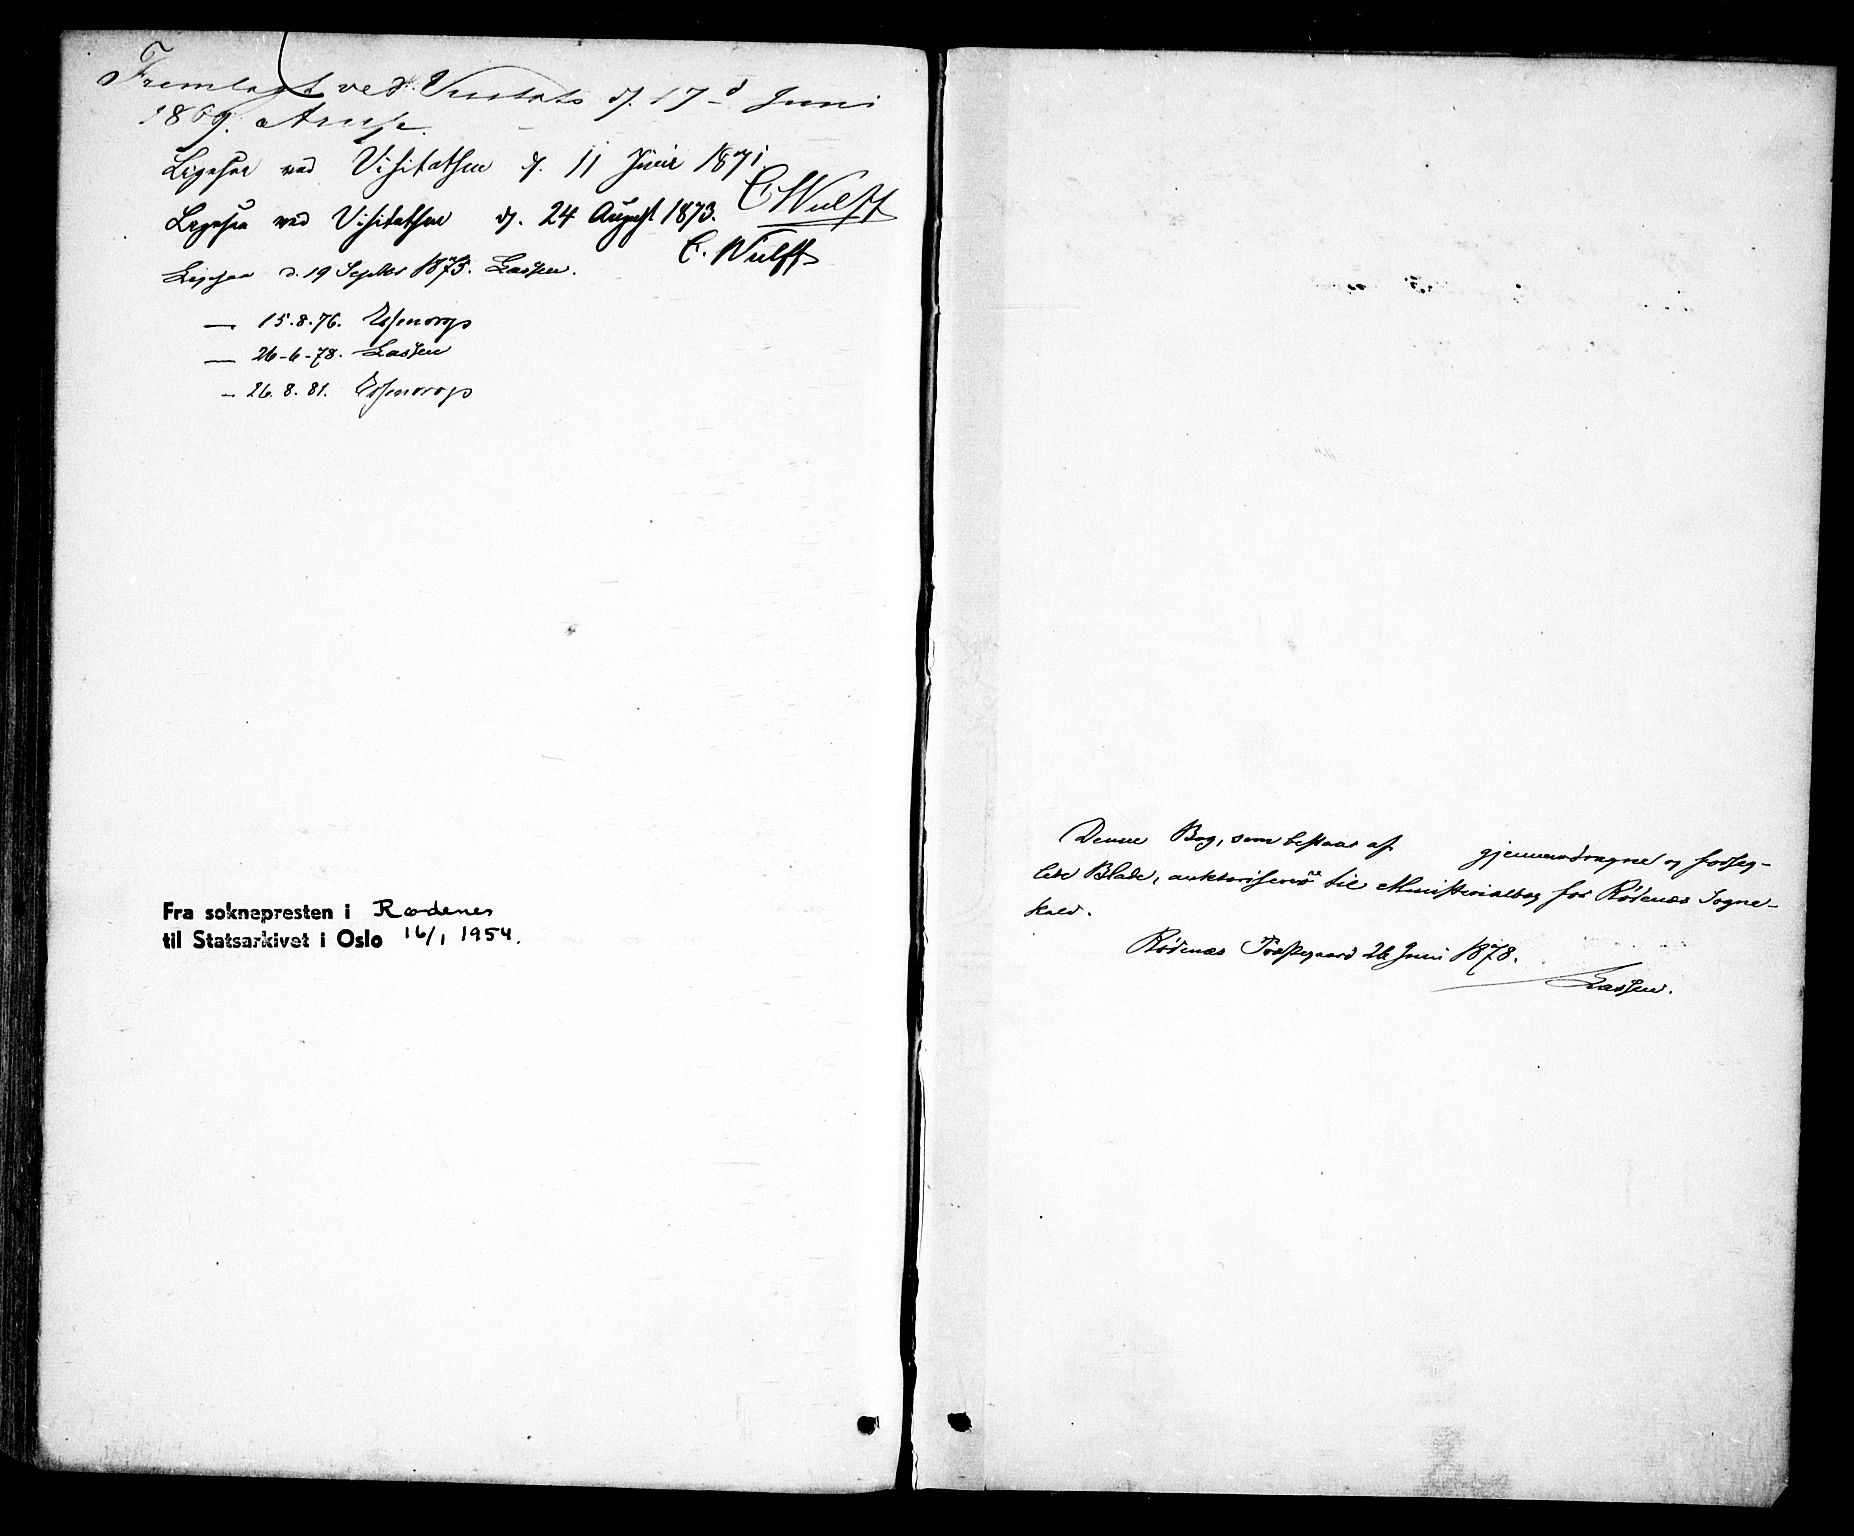 Fremlagt ved Visitats d. 17d Juni
1869. Arup.
Ligesaa ved Visitatsen d. 11 Juni 1871.
C. Wulff
Ligesaa ved Visitatsen d. 24 August 1873.
C. Wulff
Ligesaa d. 19 Septbr 1875. Lassen.
— 15.8.76. Essendrop
— 26-6-78. Lassen
— 26.8.81. Essendrop
Fra soknepresten i Rødenes
til Statsarkivet i Oslo 16/1 1954.
Denne Bog, som bestaar af gjennemdragne og forseg-
lede Blade, auktoriseres til Ministerialbog for Rødenæs Sogne-
kald.
Rødenæs Præstegaard 26 Juni 1878.
Lassen.